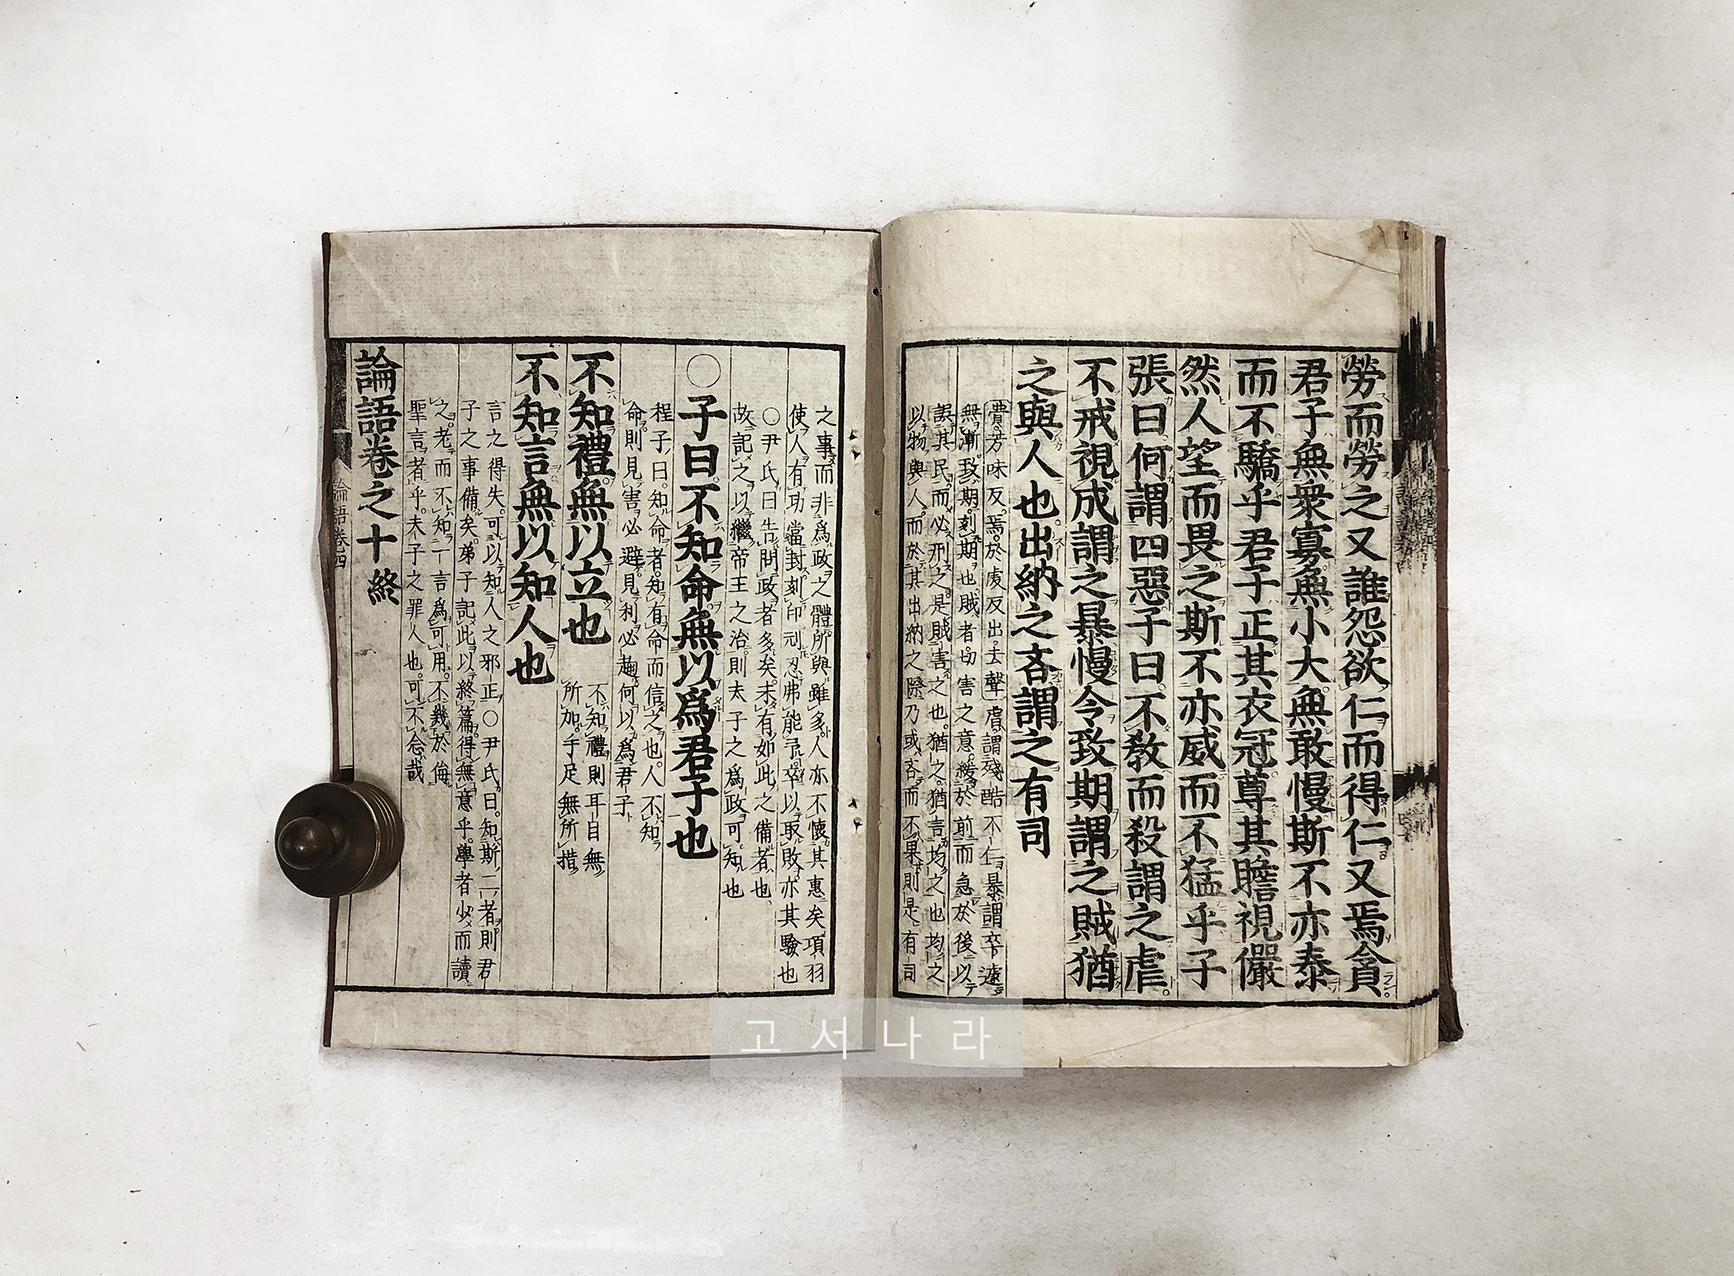 勞而勞之又誰怨欲仁而得仁又焉貪
君子無衆寡無小大無敢慢斯不亦泰
而不驕乎君子正其衣冠尊其瞻視儼
然人望而畏之斯不亦威而不猛乎子
張曰何謂四惡子曰不教而殺謂之虐
不戒視成謂之暴慢令致期謂之賊猶
之與人也出納之吝謂之有司
費芳味反焉於虔反出去聲虐謂殘酷不仁暴謂卒遽
無漸致期刻期也賊者切害之意緩於前而急於後以
誤其民而必刑之是賊害之也猶之猶言均之也均之
以物與人而於其出納之際乃或吝而不果則是有司
之事而非爲政之體所與雖多人亦不懷其惠矣項羽
使人有功當封刻印刓忍弗能予卒以取敗亦其驗也
○尹氏曰告問政者多矣未有如此之備者也
故記之以繼帝王之治則夫子之爲政可知也
○子曰不知命無以爲君子也
程子曰知命者知有命而信之也人不知
命則見害必避見利必趨何以爲君子
不知禮無以立也
不知禮則耳目無
所加手足無所措
不知言無以知人也
言之得失可以知人之邪正○尹氏曰知斯三者則君
子之事備矣弟子記此以終篇得無意乎學者少而讀
之老而不知一言爲可用不幾於侮
聖言者乎夫子之罪人也可不念哉
論語卷之十終
論語卷四
고서나라